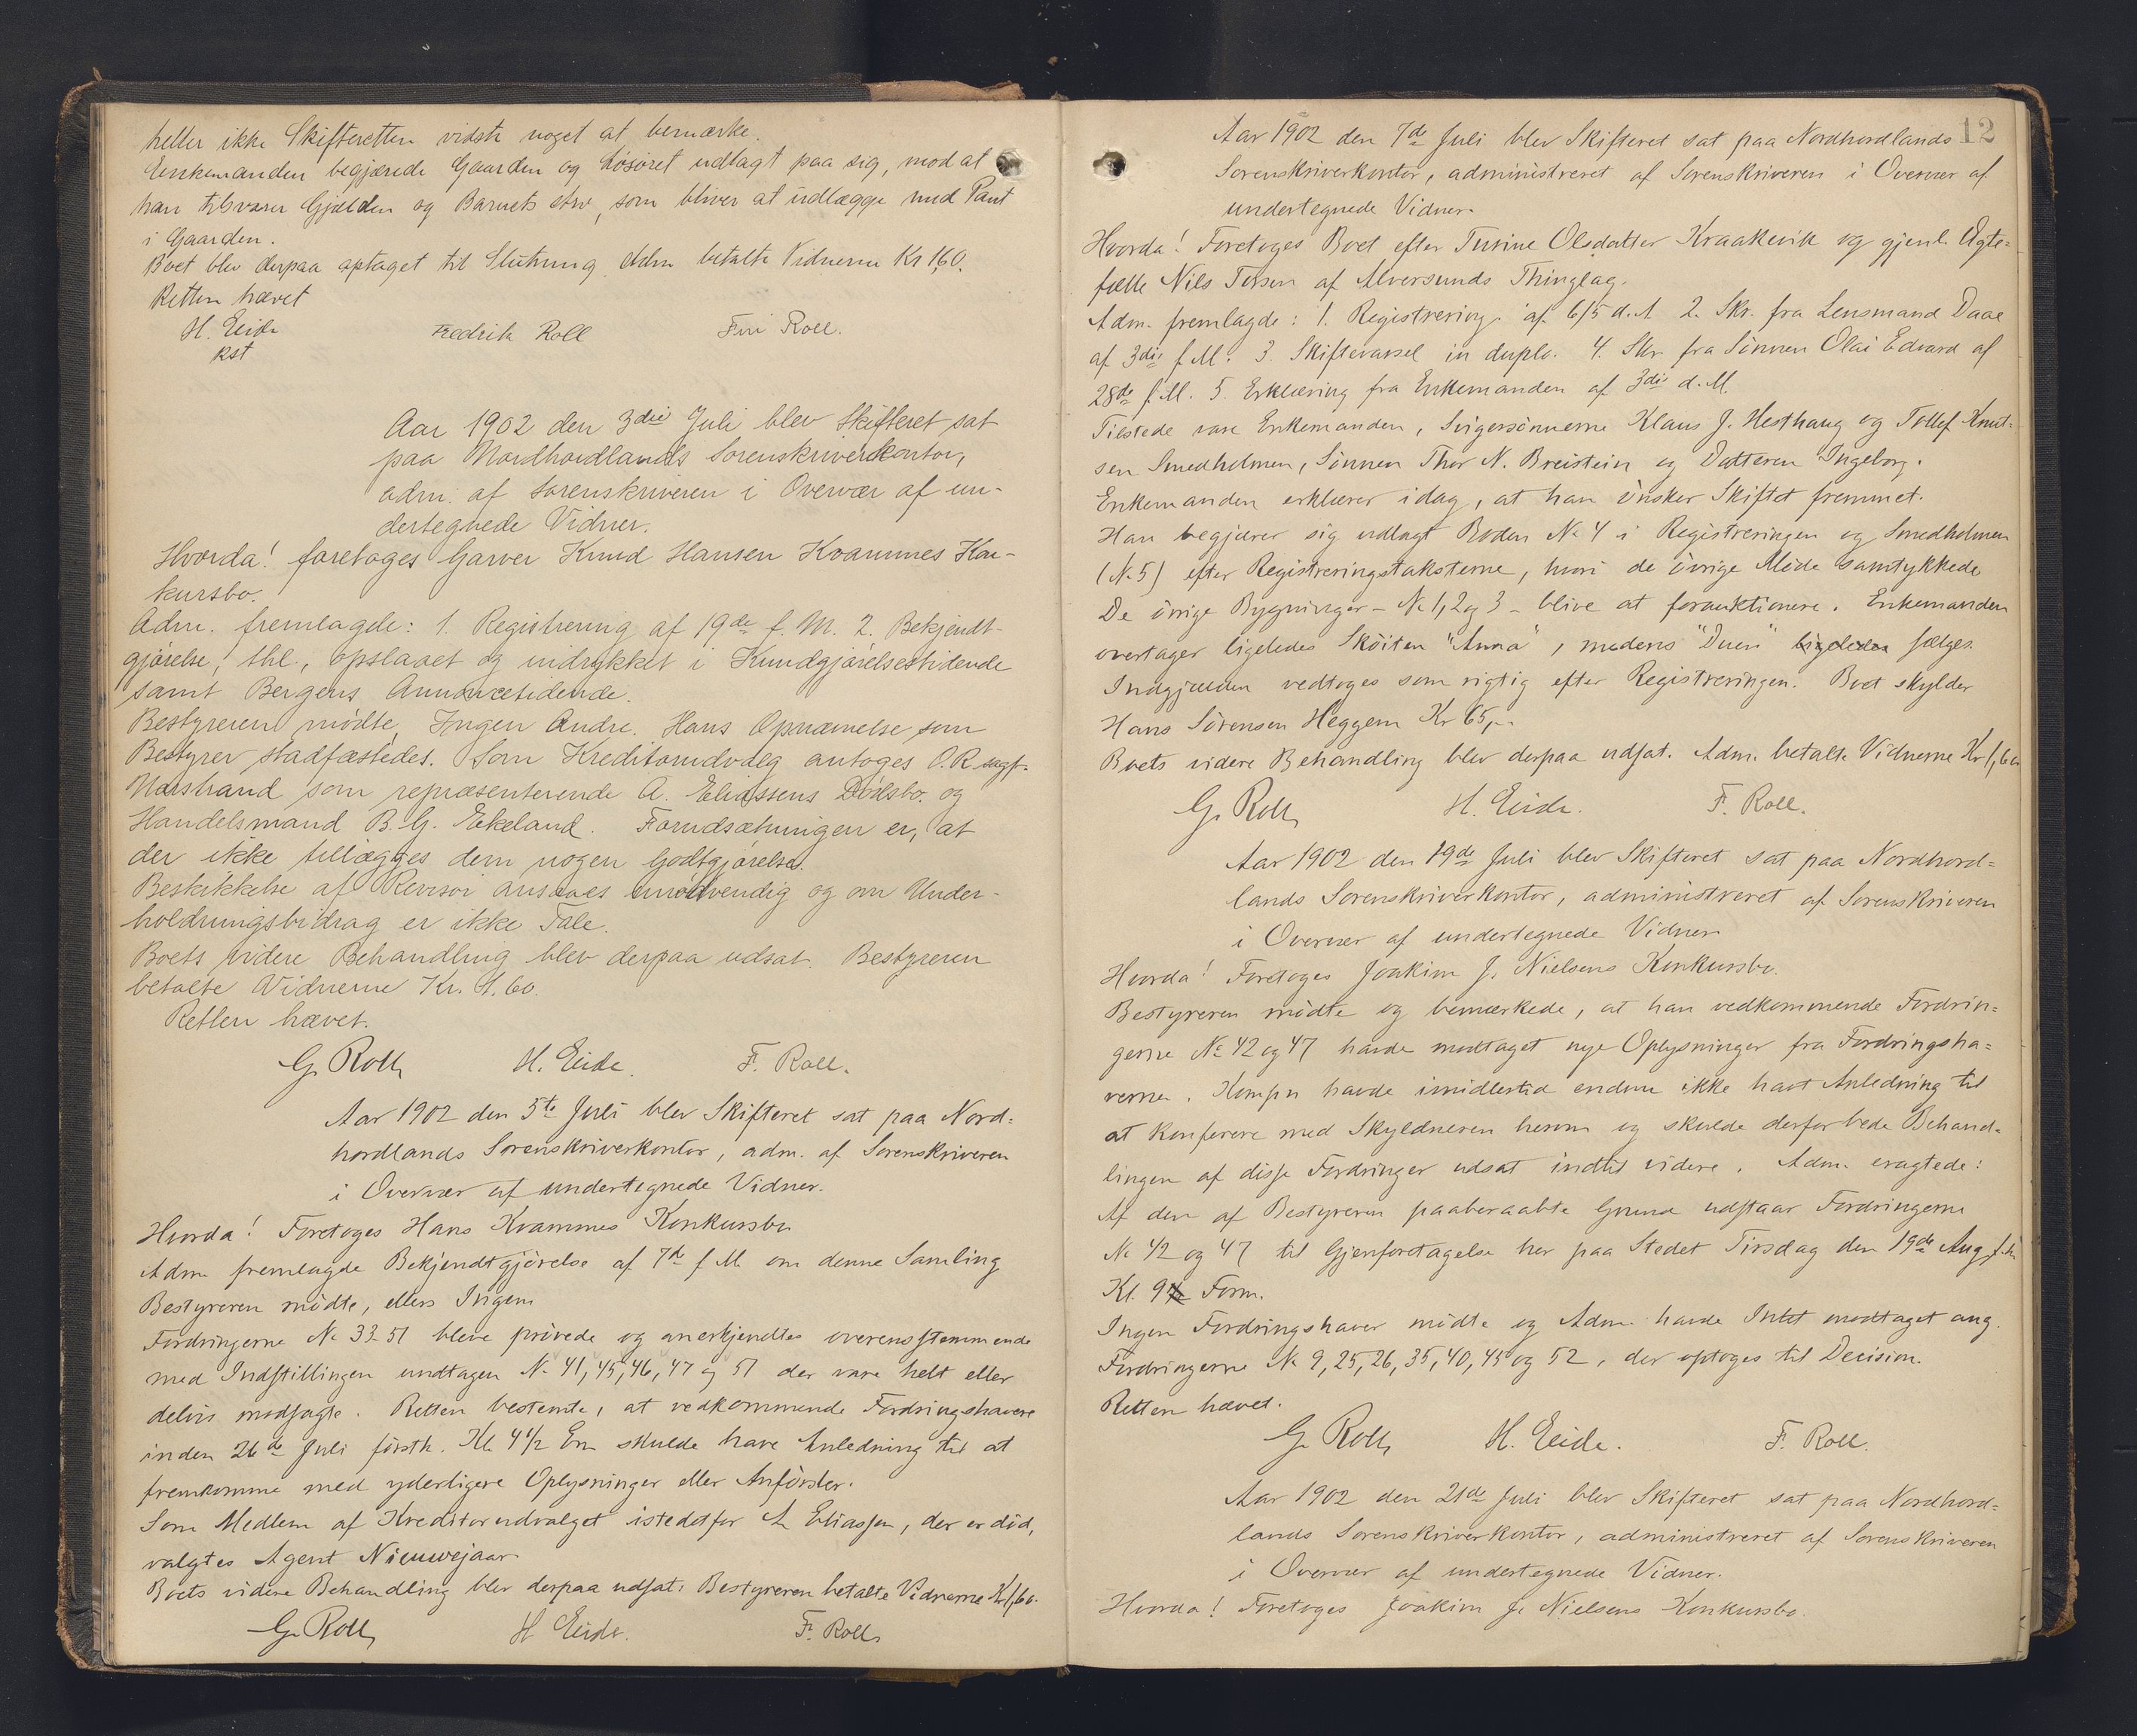 heller ikke Skifteretten vidste noget at bemærke.
Enkemanden begjærede Gaarden og Løsøret udlagt paa sig, mod at
han tilsvarer Gjælden og Barnets Arv, som bliver at udlægge med Pant
i Gaarden.
Boet blev derpaa optaget til Slutning. Adm betalte Vidnerne Kr 1,60.
Retten hævet
H. Eide Fredrik Roll Finn Roll.
kst
Aar 1902 den 3die Juli blev Skifteret sat
paa Nordhordlands Sorenskriverkontor,
adm. af Sorenskriveren i Overvær af un-
dertegnede Vidner.
Hvorda! foretoges Garver Knud Hansen Kvammes Kon-
kursbo.
Adm. fremlagde: 1. Registrering af 19de f. M. 2. Bekjendt-
gjørelse, thl., opslaaet og indrykket i Kundgjørelsestidende
samt Bergens Annoncetidende.
Bestyreren mødte, Ingen Andre. Hans Opnævnelse som
Bestyrer stadfæstedes. Som Kreditorudvalg antoges O.R sagf.
Marstrand som repræsenterende A. Eliassens Dødsbo. og
Handelsmand B. G. Eikeland. Forudsætningen er, at
der ikke tillægges dem nogen Godtgjørelse.
Beskikkelse af Revisor ansaaes unødvendig og om Under-
holdningsbidrag er ikke Tale.
Boets videre Behandling blev derpaa udsat. Bestyreren
betalte Vidnerne Kr. 1.60.
Retten hævet.
G. Roll H. Eide. F. Roll.
Aar 1902 den 5te Juli blev Skifteret sat paa Nord=
hordlands Sorenskriverkontor, adm. af Sorenskriveren
i Overvær af undertegnede Vidner.
Hvorda! Foretoges Hans Kvammes Konkursbo
Adm fremlagde Bekjendtgjørelse af 7de f M. om denne Samling
Bestyreren mødte, ellers Ingen.
Fordringerne No 33-51 bleve prøvede og anerkjendtes overensstemmende
med Indstillingen undtagen No 41, 45, 46, 47 og 51 der vare helt eller
delvis modsagte. Retten bestemte, at vedkommende Fordringshavere
inden 26de Juli førstk. Kl. 4 1/2 Em skulde have Anledning til at
fremkomme med yderligere Oplysninger eller Anførsler.
Som Medlem af Kreditorudvalget istedetfor A Eliassen, der er død,
valgtes Agent Nieuwejaar
Boets videre Behandling blev derpaa udsat. Bestyreren betalte Vidnerne Kr 1,60.
G. Roll H Eide. F. Roll.
12
Aar 1902 den 7de Juli blev Skifteret sat paa Nordhordlands
Sorenskriverkontor, administreret af Sorenskriveren i Overvær af
undertegnede Vidner.
Hvorda! Foretoges Boet efter Turine Olsdatter Kraakevik og gjenl. Ægte=
fælle Nils Torsen af Alversunds Thinglag.
Adm. fremlagde: 1. Registrering. af 6/5 d. A 2. Skr. fra Lensmand Daae
af 3die f. M. 3. Skiftevarsel in duplo. 4. Skr fra Sønnen Olai Edvard af
28de f. M. 5. Erklæring fra Enkemanden af 3die d. M.
Tilstede vare Enkemanden, Svigersønnerne Klaus J. Hesthaug og Tollef Knut-
sen Smedholmen, Sønnen Thor N. Breistein og Datteren Ingeborg.
Enkemanden erklærer idag, at han ønsker Skiftet fremmet.
Han begjærer sig udlagt Boden No 4 i Registreringen og Smedholmen
(No 5) efter Registreringstaksterne, hvori de øvrige Mødte samtykkede
De øvrige Bygninger - No 1, 2 og 3 - blive at forauktionere. Enkemanden
overtager ligeledes Skøiten "Anna", medens "Duen" ligeledes sælges.
Indgjælden vedtoges som rigtig efter Registreringen. Boet skylder
Hans Sørensen Heggem Kr 65,-
Boets videre Behandling blev derpaa udsat. Adm. betalte Vidnerne Kr 1,60
G. Roll H. Eide. F. Roll.
Aar 1902 den 19de Juli blev Skifteret sat paa Nordhord=
lands Sorenskriverkontor, administreret af Sorenskriveren
i Overvær af undertegnede Vidner
Hvorda! Foretoges Joakim J. Nielsens Konkursbo.
Bestyreren mødte og bemærkede, at han vedkommende Fordrin=
gerne No 42 og 47 havde modtaget nye Oplysninger fra Fordringsha=
verne. Komp. havde imidlertid endnu ikke havt Anledning til
at konferere med Skyldneren herom og skulde derfor bede Behand=
lingen af disse Fordringer udsat indtil videre. Adm. eragtede:
Af den af Bestyreren paaberaabte Grund udstaar Fordringerne
No 42 og 47 til Gjenforetagelse her paa Stedet Tirsdag den 19de Aug
Kl. 9 Form.
Ingen Fordringshaver mødte og Adm. havde Intet modtaget ang.
Fordringerne No 9, 25, 26, 35, 40, 45 og 52, der optoges til Decision.
Retten hævet.
G. Roll H. Eide. F. Roll.
Aar 1902 den 21de Juli blev Skifteret sat paa Nordhord=
lands Sorenskriverkontor, administreret af Sorenskriveren
i Overvær af undertegnede Vidner.
Hvorda! Foretoges Joakim J. Nielsens Konkursbo.